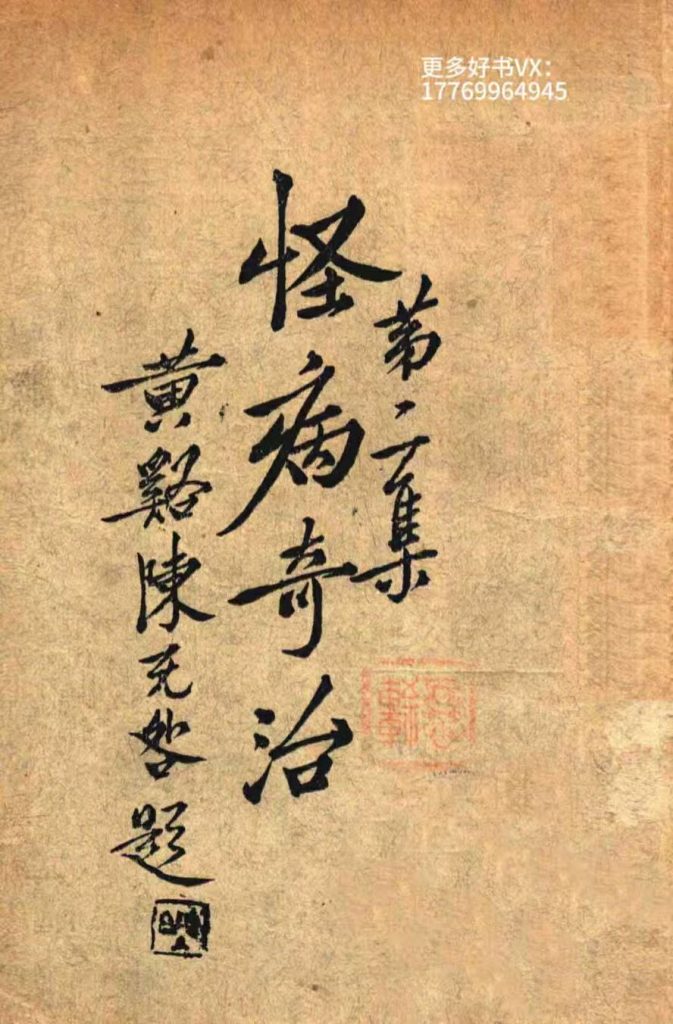 更多好书VX:
17769964945
第二集
怪病奇治
黄谿陳无咎題